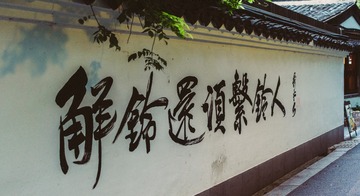 解鈴還須繫鈴人